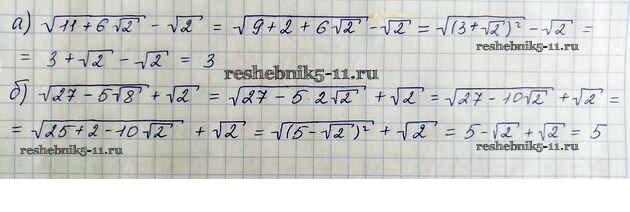 а) √(11 + 6√2) - √2 = √(9 + 2 + 6√2) - √2 = √((3 + √2)²) - √2 =
= 3 + √2 - √2 = 3
reshebnik5-11.ru
б) √(27 - 5√8) + √2 = √(27 - 5·2√2) + √2 = √(27 - 10√2) + √2 =
= √(25 + 2 - 10√2) + √2 = √((5 - √2)²) + √2 = 5 - √2 + √2 = 5
reshebnik5-11.ru reshebnik5-11.ru